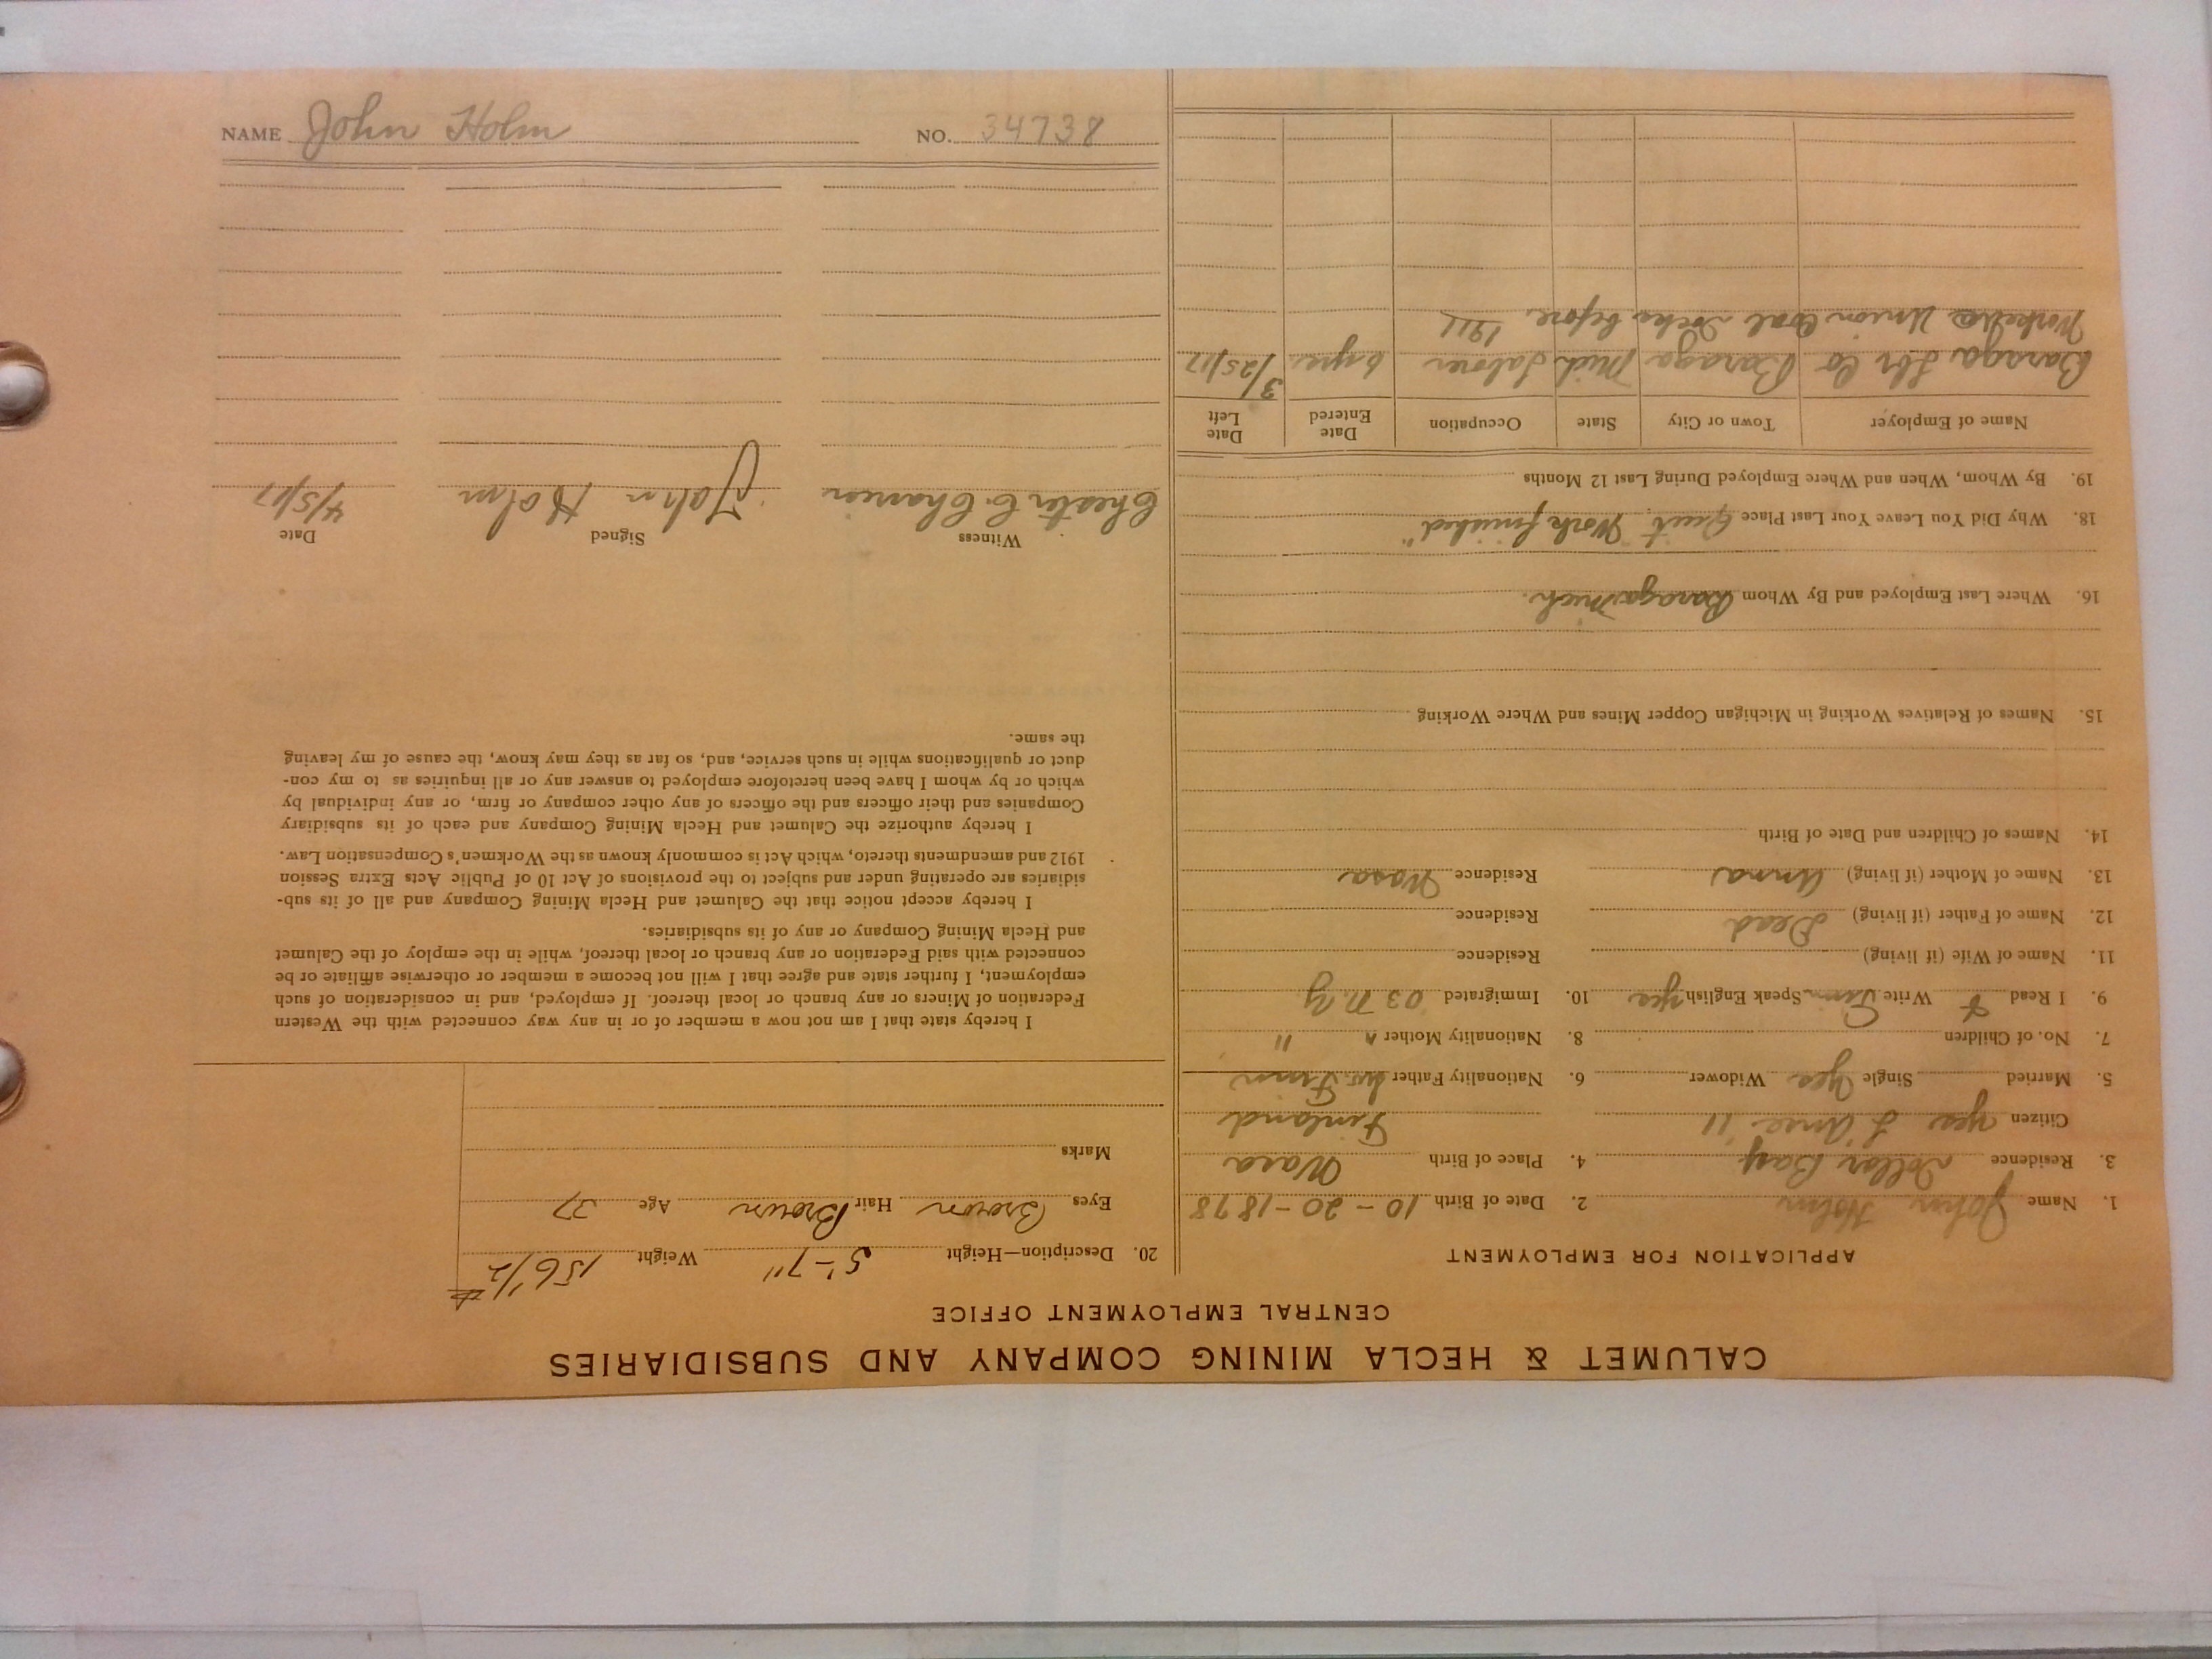 CALUMET & HECLA MINING COMPANY AND SUBSIDIARIES
CENTRAL EMPLOYMENT OFFICE
APPLICATION FOR EMPLOYMENT
1. Name John Holm 2. Date of Birth 10-20-1878
3. Residence Dollar Bay 4. Place of Birth Wasa
Citizen yes L'Anse '11 Finland
5. Married Single Yes Widower 6. Nationality Father Finn
7. No. of Children 8. Nationality Mother " "
9. I Read F Write Finn Speak English yes 10. Immigrated 03 N.Y.
11. Name of Wife (if living) Residence
12. Name of Father (if living) Dead Residence
13. Name of Mother (if living) Anna Residence Wasa
14. Names of Children and Date of Birth
15. Names of Relatives Working in Michigan Copper Mines and Where Working
16. Where Last Employed and By Whom Baraga Mich.
18. Why Did You Leave Your Last Place Quit, "Work finished"
19. By Whom, When and Where Employed During Last 12 Months
Name of Employer Town or City State Occupation Date Entered Date Left
Baraga Lbr Co Baraga Mich Laborer 6 yrs. 3/25/17
Worked Union Coal Docks before. 1911
20. Description—Height 5'-7" Weight 156 1/2 #
Eyes Brown Hair Brown Age 37
Marks
I hereby state that I am not now a member of or in any way connected with the Western
Federation of Miners or any branch or local thereof. If employed, and in consideration of such
employment, I further state and agree that I will not become a member or otherwise affiliate or be
connected with said Federation or any branch or local thereof, while in the employ of the Calumet
and Hecla Mining Company or any of its subsidiaries.
I hereby accept notice that the Calumet and Hecla Mining Company and all of its sub-
sidiaries are operating under and subject to the provisions of Act 10 of Public Acts Extra Session
1912 and amendments thereto, which Act is commonly known as the Workmen's Compensation Law.
I hereby authorize the Calumet and Hecla Mining Company and each of its subsidiary
Companies and their officers and the officers of any other company or firm, or any individual by
which or by whom I have been heretofore employed to answer any or all inquiries as to my con-
duct or qualifications while in such service, and, so far as they may know, the cause of my leaving
the same.
Witness Signed Date
Chester C. John Holm 4/5/17
NAME John Holm NO. 34738